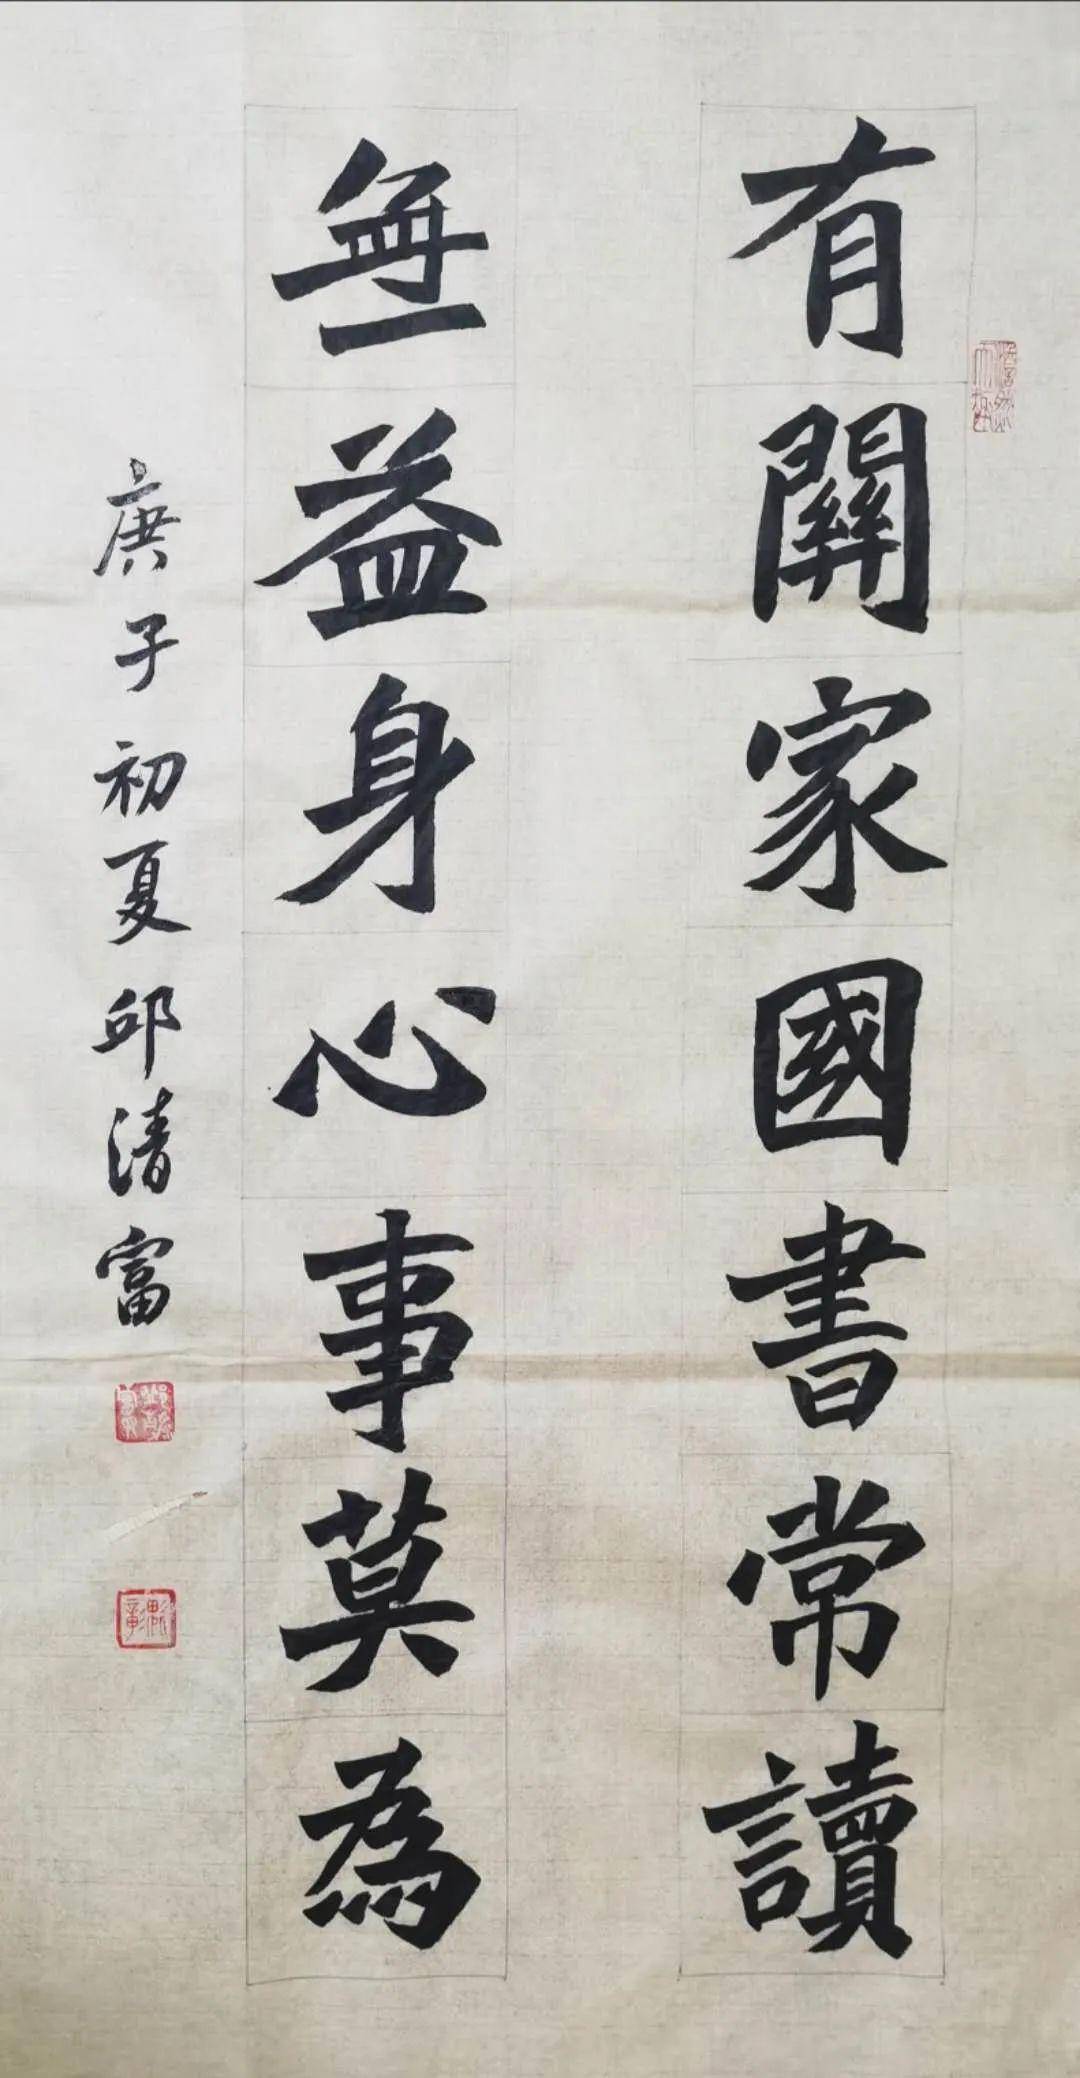 有關家國書常讀
無益身心事莫為
庚子初夏邱清富